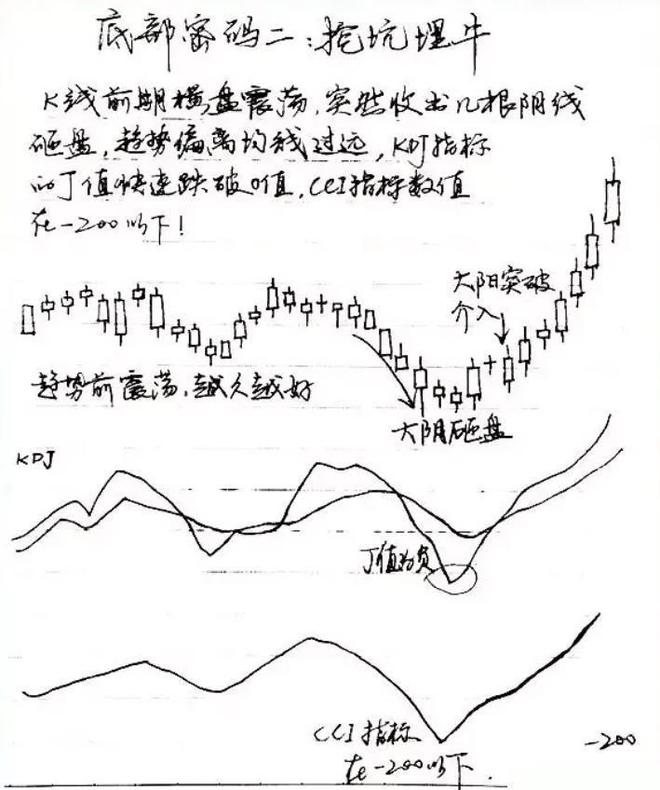 底部密码二:挖坑埋牛
K线前期横盘震荡,突然收出几根阴线
砸盘,趋势偏离均线过远,KDJ指标
的J值快速跌破0值,CCI指标数值
在-200以下!
大阳突破
介入
趋势前震荡,越久越好
大阴砸盘
KDJ
J值为负
CCI指标
在-200以下.
-200